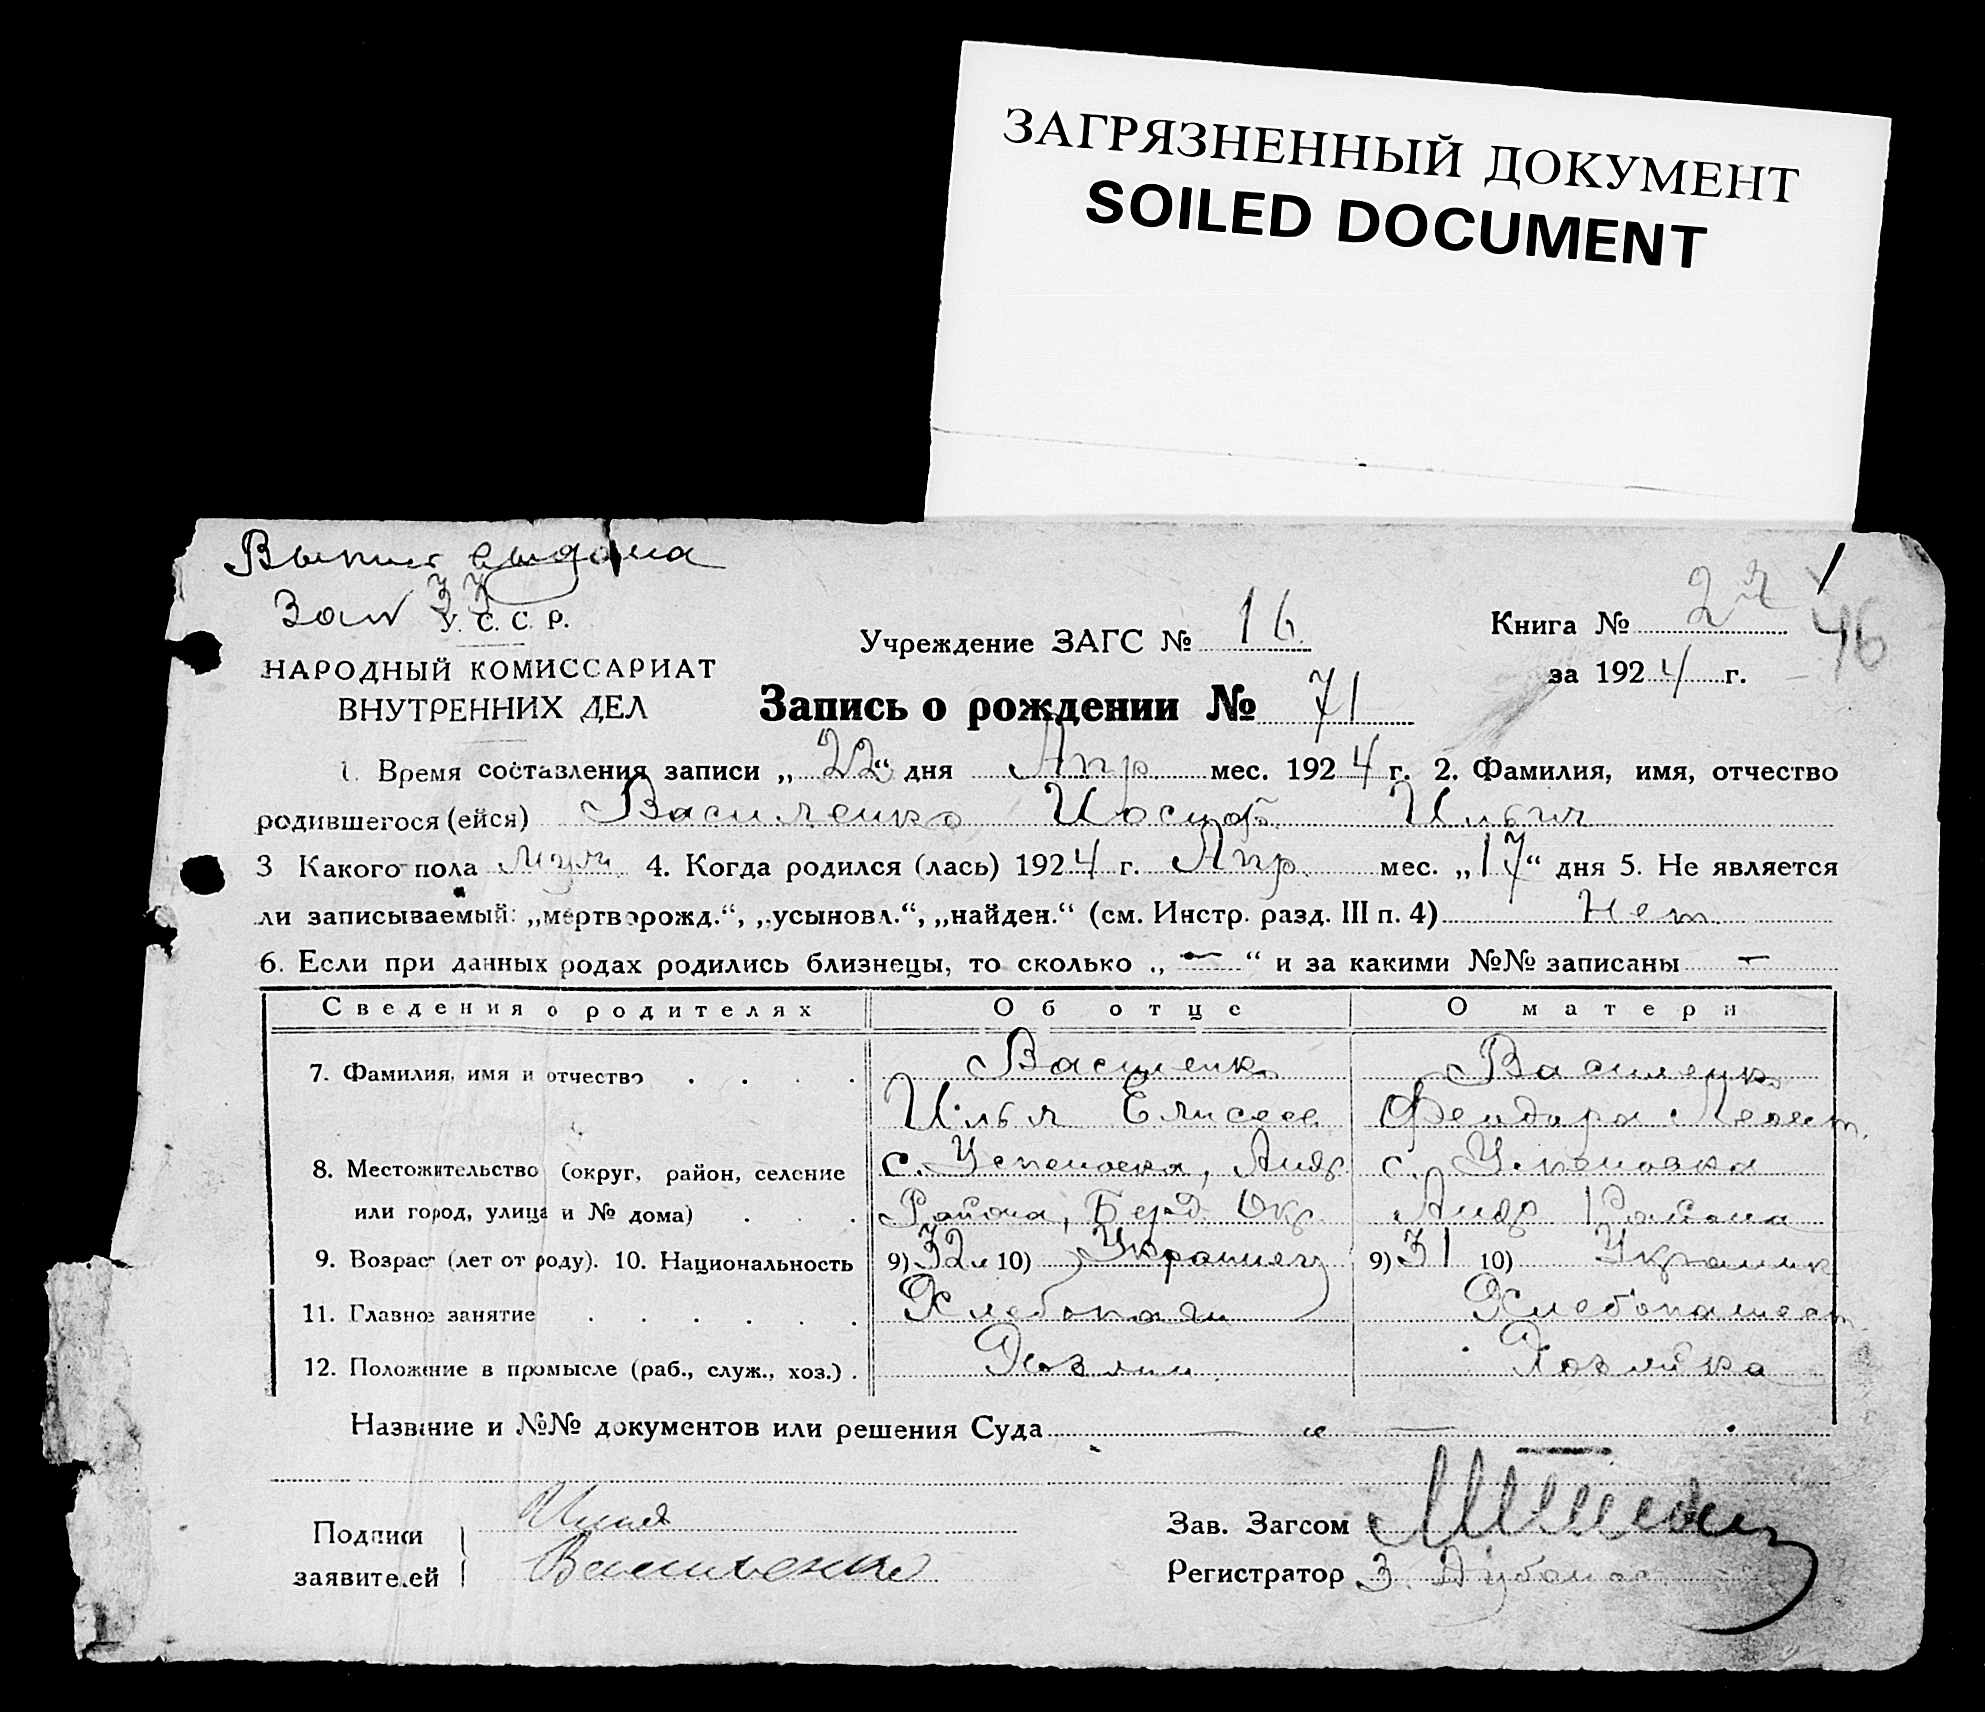 ЗАГРЯЗНЕННЫЙ ДОКУМЕНТ
SOILED DOCUMENT
Выпис выдана
Зап 33
У. С. С. Р.
НАРОДНЫЙ КОМИССАРИАТ
ВНУТРЕННИХ ДЕЛ
Учреждение ЗАГС № 16
Книга № 22
46
за 1924 г.
Запись о рождении № 71
1. Время составления записи „22“ дня Апр. мес. 1924 г. 2. Фамилия, имя, отчество
родившегося (ейся) Василенко Иосиф Ильич
3 Какого пола муж 4. Когда родился (лась) 1924 г. Апр. мес. „17“ дня 5. Не является
ли записываемый: „мертворожд.“, „усыновл.“, „найден.“ (см. Инстр. разд. III п. 4) Нет
6. Если при данных родах родились близнецы, то сколько „—“ и за какими №№ записаны —
Сведения о родителях Об отце О матери
7. Фамилия, имя и отчество Василенко Василенко
Илья Елисеев Феодора Леонт.
8. Местожительство (округ, район, селение с. Успеновка, Андр. с. Успеновка
или город, улица и № дома) Района, Берд. Окр. Андр Района
9. Возраст (лет от роду). 10. Национальность 9) 32 л 10) Украинец 9) 31 10) Украинк
11. Главное занятие Хлебопаш Хлебопашест.
12. Положение в промысле (раб., служ., хоз.) Хозяин Хозяйка
Название и №№ документов или решения Суда — „ —
Подписи заявителей Илья
Василенко
Зав. Загсом
Регистратор З.